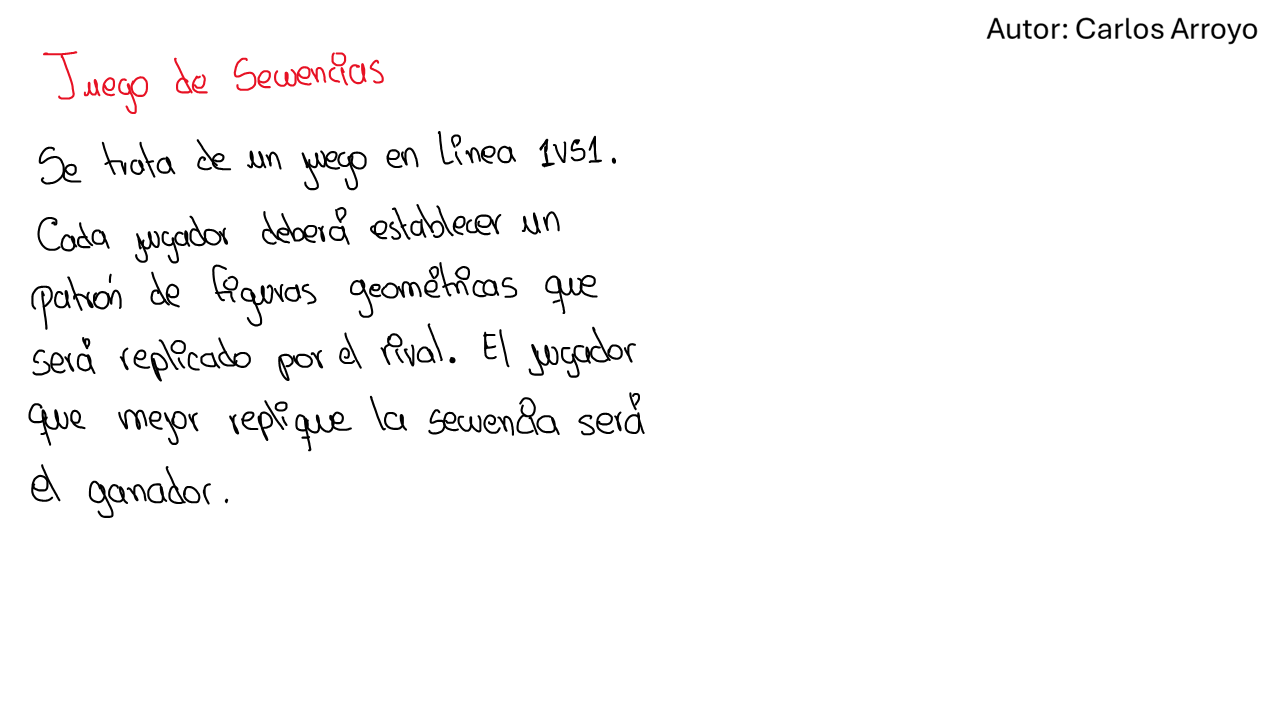 Autor: Carlos Arroyo
Juego de Secuencias
Se trata de un juego en línea 1VS1.
Cada jugador deberá establecer un
patrón de figuras geométricas que
será replicado por el rival. El jugador
que mejor replique la secuencia será
el ganador.